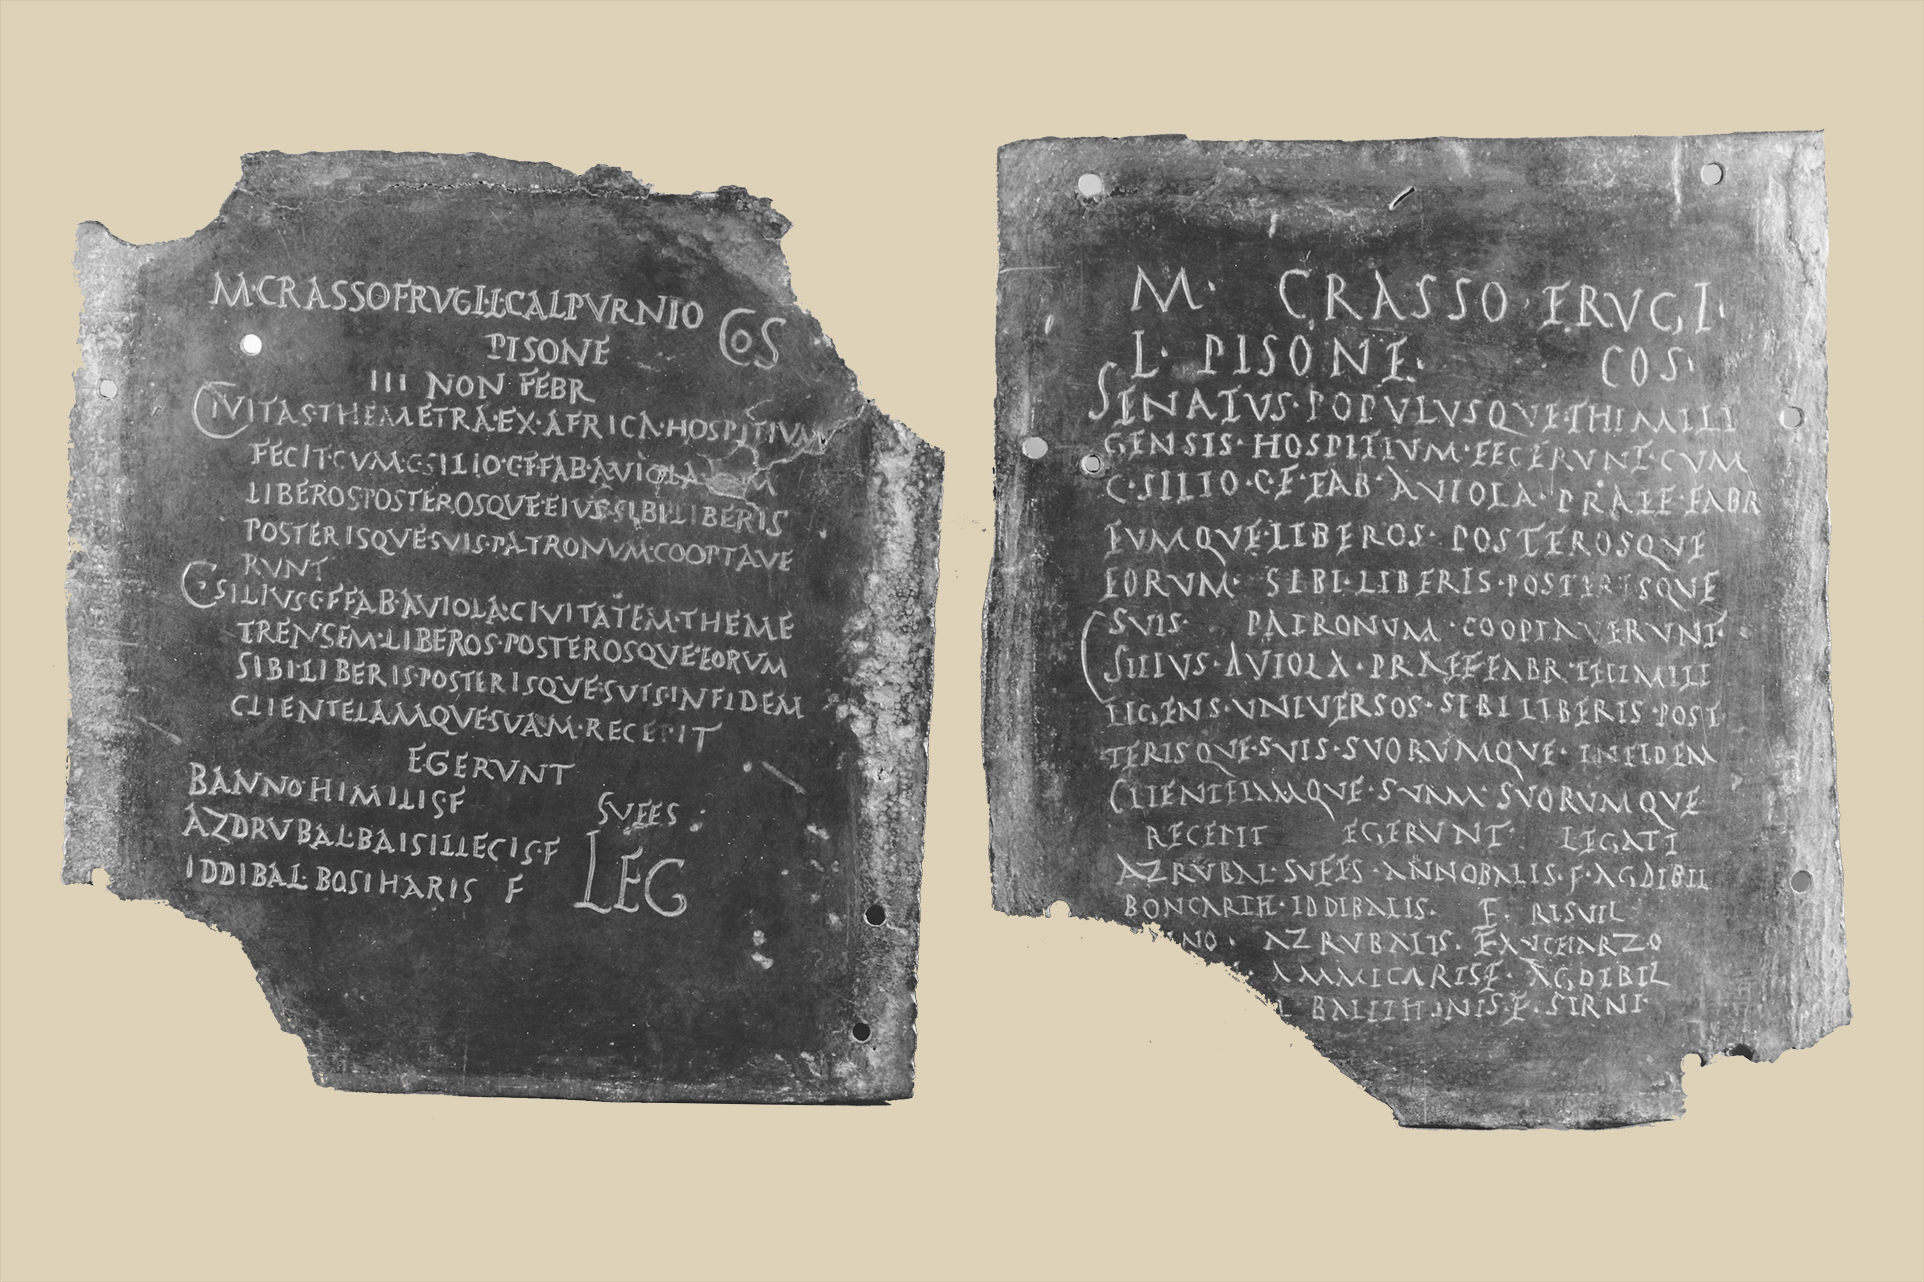 M·CRASSO FRUGI·L·CALPVRNIO COS
PISONE
III NON FEBR
CIVITAS·THEMETRA·EX·AFRICA·HOSPITIVM
FECIT·CVM·C·SILIO·C·F·FAB·AVIOLA
LIBEROS POSTEROSQVE·EIVS·SIBI·LIBERIS
POSTERISQVE·SVIS·PATRONVM·COOPTAVE
RVNT
C·SILIVS·C·F·FAB·AVIOLA·CIVITATEM·THEME
TRENSEM·LIBEROS·POSTEROSQVE·EORVM
SIBI·LIBERIS·POSTERISQVE·SVIS·IN FIDEM
CLIENTELAMQVE SVAM·RECEPIT
EGERVNT
BANNO·HIMILIS·F SVFES
AZDRVBAL·BAISILLECIS·F
IDDIBAL·BOSIHARIS F LEG
M· CRASSO·FRVGI·
L· PISONE· COS·
SENATVS·POPVLVSQVE·THIMILI
GENSIS·HOSPITIVM·FECERVNT·CVM
C·SILIO·C·F·FAB·AVIOLA·PRAEF·FABR
EVMQVE·LIBEROS·POSTEROSQVE
EORVM·SIBI·LIBERIS·POSTERISQVE
SVIS· PATRONVM·COOPTAVERVNT·
C SILIVS·AVIOLA·PRAEF·FABR·THIMILI
LIGENS·VNIVERSOS·SIBI LIBERIS·POST
TERISQVE·SVIS·SVORVMQVE·IN FIDEM
CLIENTELAMQVE·SVAM·SVORVMQVE
RECEPIT EGERVNT· LEGATI
AZRVBAL·SVFES·ANNOBALIS·F·AGDIBIL
BONCARTH·IDDIBALIS· F·
AZRVBALIS·
AMMICARIS·F·AGDIBIL
BALITHONIS·F·SIRNI·